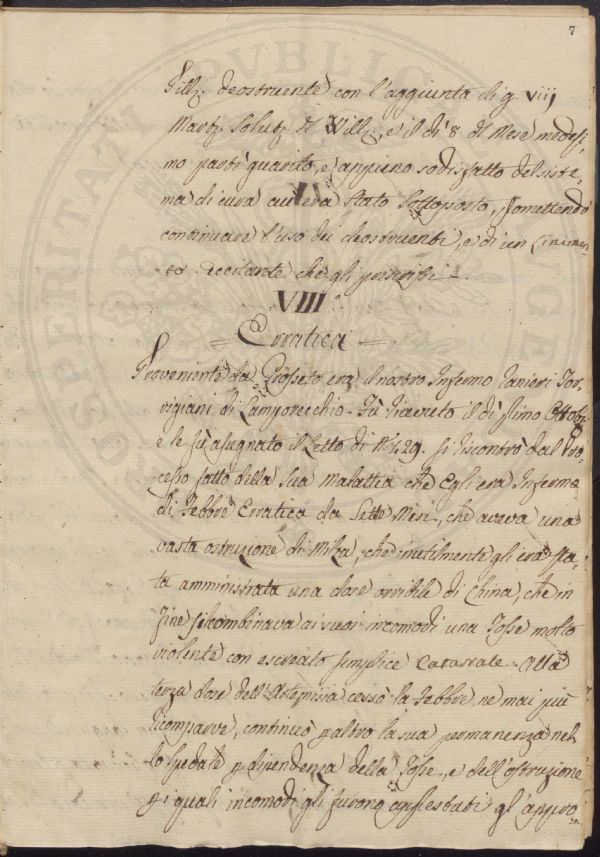 7
Pill. deostruente con l'aggiunta di g. viij
Mart. Solub. di Vill. e il dì 8. del Mese medesi=
mo partì guarito, e appieno sodisfatto del siste=
ma di cura cui era stato sottoposto, promettendo
continuare l'uso dei deostruenti, e di un
eccitante che gli prescrissi.
VIII
= Erratica =
Proveniente da Grosseto era il nostro Infermo Ranieri Tor=
rigiani di Lamporecchio. Fù ricevuto il dì primo Ottobre
e le fù assegnato il Letto di N. 429. Si riscontrò dal Pro=
cesso fatto della sua Malattia che Egli era Infermo
di Febbre Erratica da Sette Mesi, che aveva una
vasta ostruzione di Milza, che inutilmente gli era sta=
ta amministrata una dose orribile di China, che in
fine si combinava ai suoi incomodi una Tosse molto
violente con escreato semplice Catarrale. Alla
terza dose dell'Artemisia cessò la Febbre, ne mai più
ricomparve, continuò p altro la sua permanenza nel=
lo Spedale p dipendenza della Tosse, e dell'ostruzione
p i quali incomodi gli furono apprestati gl'appro=